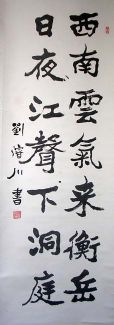 西南雲氣来衡岳
日夜江聲下洞庭
劉川書